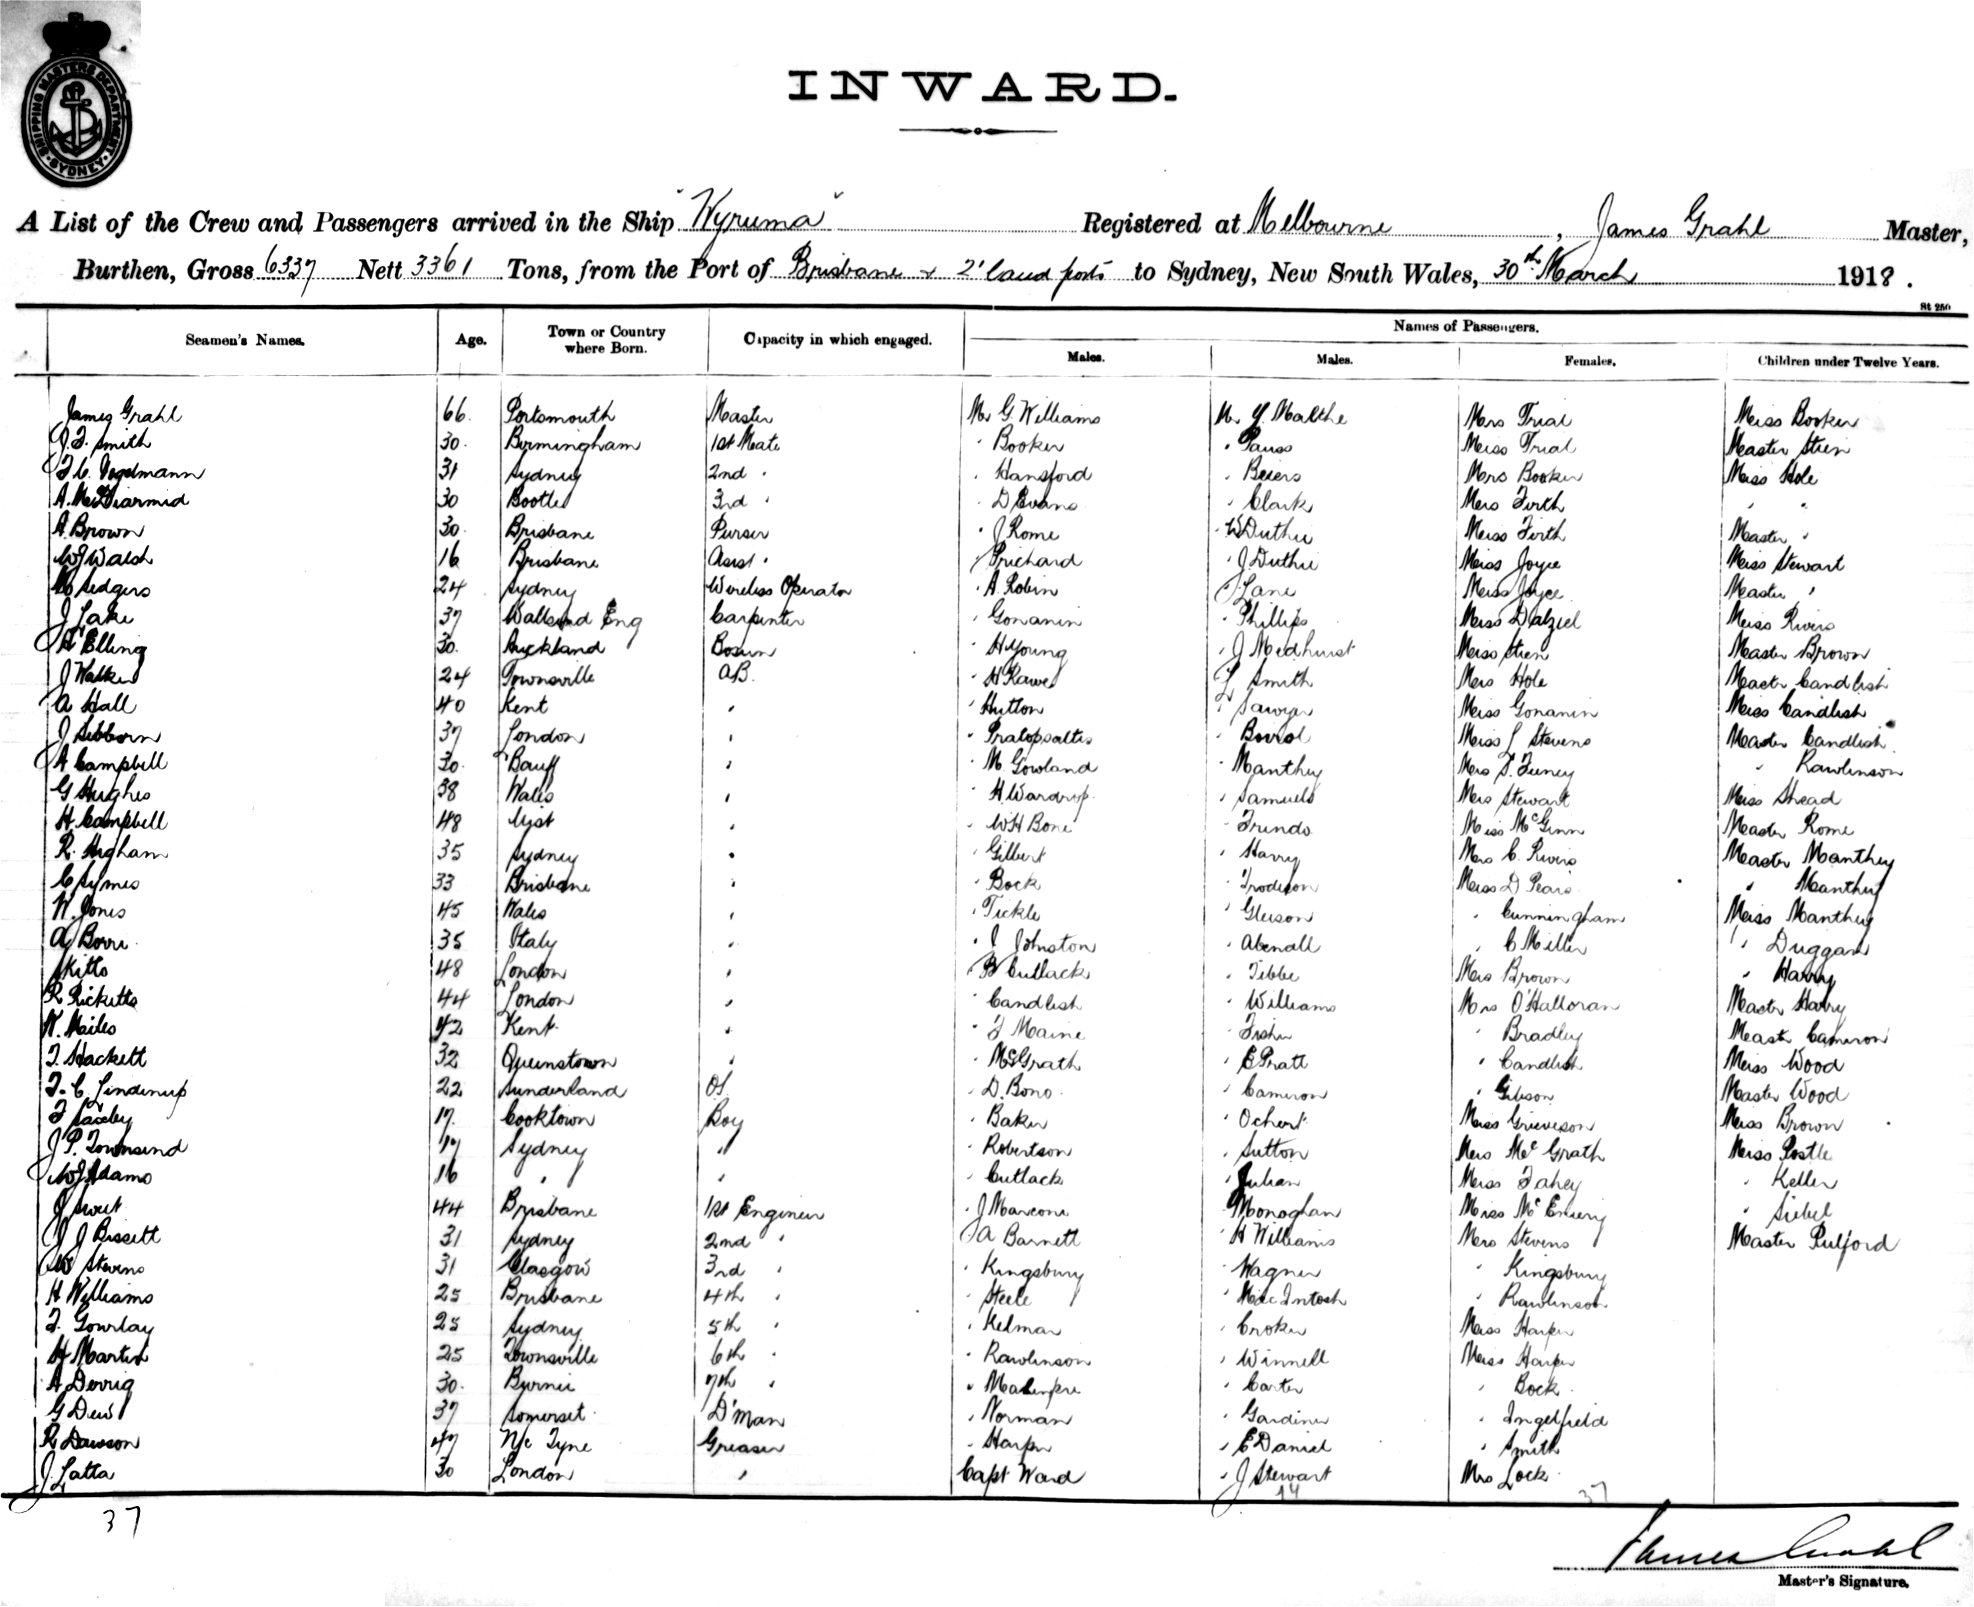 SHIPPING MASTERS DEPARTMENT
SYDNEY
INWARD.
A List of the Crew and Passengers arrived in the Ship "Wyruma" Registered at Melbourne, James Grahl Master,
Burthen, Gross 6337 Nett 3361 Tons, from the Port of Brisbane + 2'land ports to Sydney, New South Wales, 30th March 1918.
St 250
Seamen's Names. Age. Town or Country where Born. Capacity in which engaged. Names of Passengers.
Males. Males. Females. Children under Twelve Years.
James Grahl 66. Portsmouth Master Mr G. Williams Mr Y. Malthe Mrs Trial Miss Booker
J. F. Smith 30. Birmingham 1st Mate " Booker " Pauss Miss Trial Master Stien
F. C. Vogelmann 31 Sydney 2nd " " Hansford " Beiers Mrs Booker Miss Hole
A. McDiarmid 30 Bootle 3rd " " D Evans " Clark Mrs Firth " "
A. Brown 30. Brisbane Purser " J Rome " W Duthie Miss Firth Master "
W J Walsh 16 Brisbane Asst " " Prichard " J. Duthie Miss Joyce Miss Stewart
Sedgers 24 Sydney Wireless Operator " A. Robin " Lane Miss Joyce Master "
J Lake 37 Wallsend Eng Carpenter " Gonanin " Phillips Miss Dalziel Miss Rivers
A Elling 30. Auckland Bosun " H Young " J Medhurst Miss Stien Master Brown
J Walker 24 Townsville AB. " H Rawe L Smith Mrs Hole Master Candlish
A Hall 40 Kent " " Hutton " Sawyer Miss Gonanin Miss Candlish
J Sibborn 37 London " " Pratopsaltis " Miss L Stevens Master Candlish
A Campbell 30. Banff " " M. Gowland " Manthey Mrs S. Feeney " Rawlinson
G Hughes 38 Wales " " H. Wardrop " Samuels Mrs Stewart Miss Shead
H. Campbell 48 Uist " " W H Bone " Trendo Miss McGinn Master Rome
R. Higham 35 Sydney " " Gilbert " Harry Mrs C. Rivers Master Manthey
C Symes 33 Brisbane " " Bock " Miss D Pears " Manthey
W. Jones 45 Wales " " Tickle " Gleison " Cunningham Miss Manthey
A Borri 35 Italy " " J Johnston " Abenall " C Miller " Duggan
Kitts 48 London " " B Cutlack " Tibbe Mrs Brown " Harry
R Ricketts 44 London " " Candlish " Williams Mrs O'Halloran Master Harry
W. Mailes 42 Kent " " F Maine " Fisher " Bradley Master Cameron
T. Hackett 32 Queenstown " " McGrath " E Pratt " Candlish Miss Wood
T. C. Lindenup 22 Sunderland OS. " D. Bono " Cameron " Gibson Master Wood
F Saxby 17. Cooktown Boy " Baker " Ochert Miss Grieveson Miss Brown
J P. Townsend 17 Sydney " " Robertson " Sutton Mrs McGrath Miss Postle
W J Adams 16 " " " Cutlack " Julian Miss Fahey " Keller
J Swect 44 Brisbane 1st Engineer " J Marconi " Monoghan Miss McEniery " Siebel
J J Bissett 31 Sydney 2nd " " A Barnett " H Williams Mrs Stevens Master Pulford
W Stevens 31 Glasgow 3rd " " Kingsbury " Wagner " Kingsbury
H Williams 25 Brisbane 4th " " Steele " MacIntosh " Rawlinson
T. Gourlay 25 Sydney 5th " " Kelman " Croker Miss Harper
H Martin 25 Townsville 6th " " Rawlinson " Winnell Miss Harper
A Derrig 30. Burnie 7th " " " Carter " Bock
G Dew 37 Somerset D'man " Norman " Gardiner " Ingelfield
R Dawson 47 N/c Tyne Greaser " Harper " E Daniel " Smith
J. Latta 30 London " Capt Ward " J Stewart Mrs Lock
37 37
James Grahl
Master's Signature.